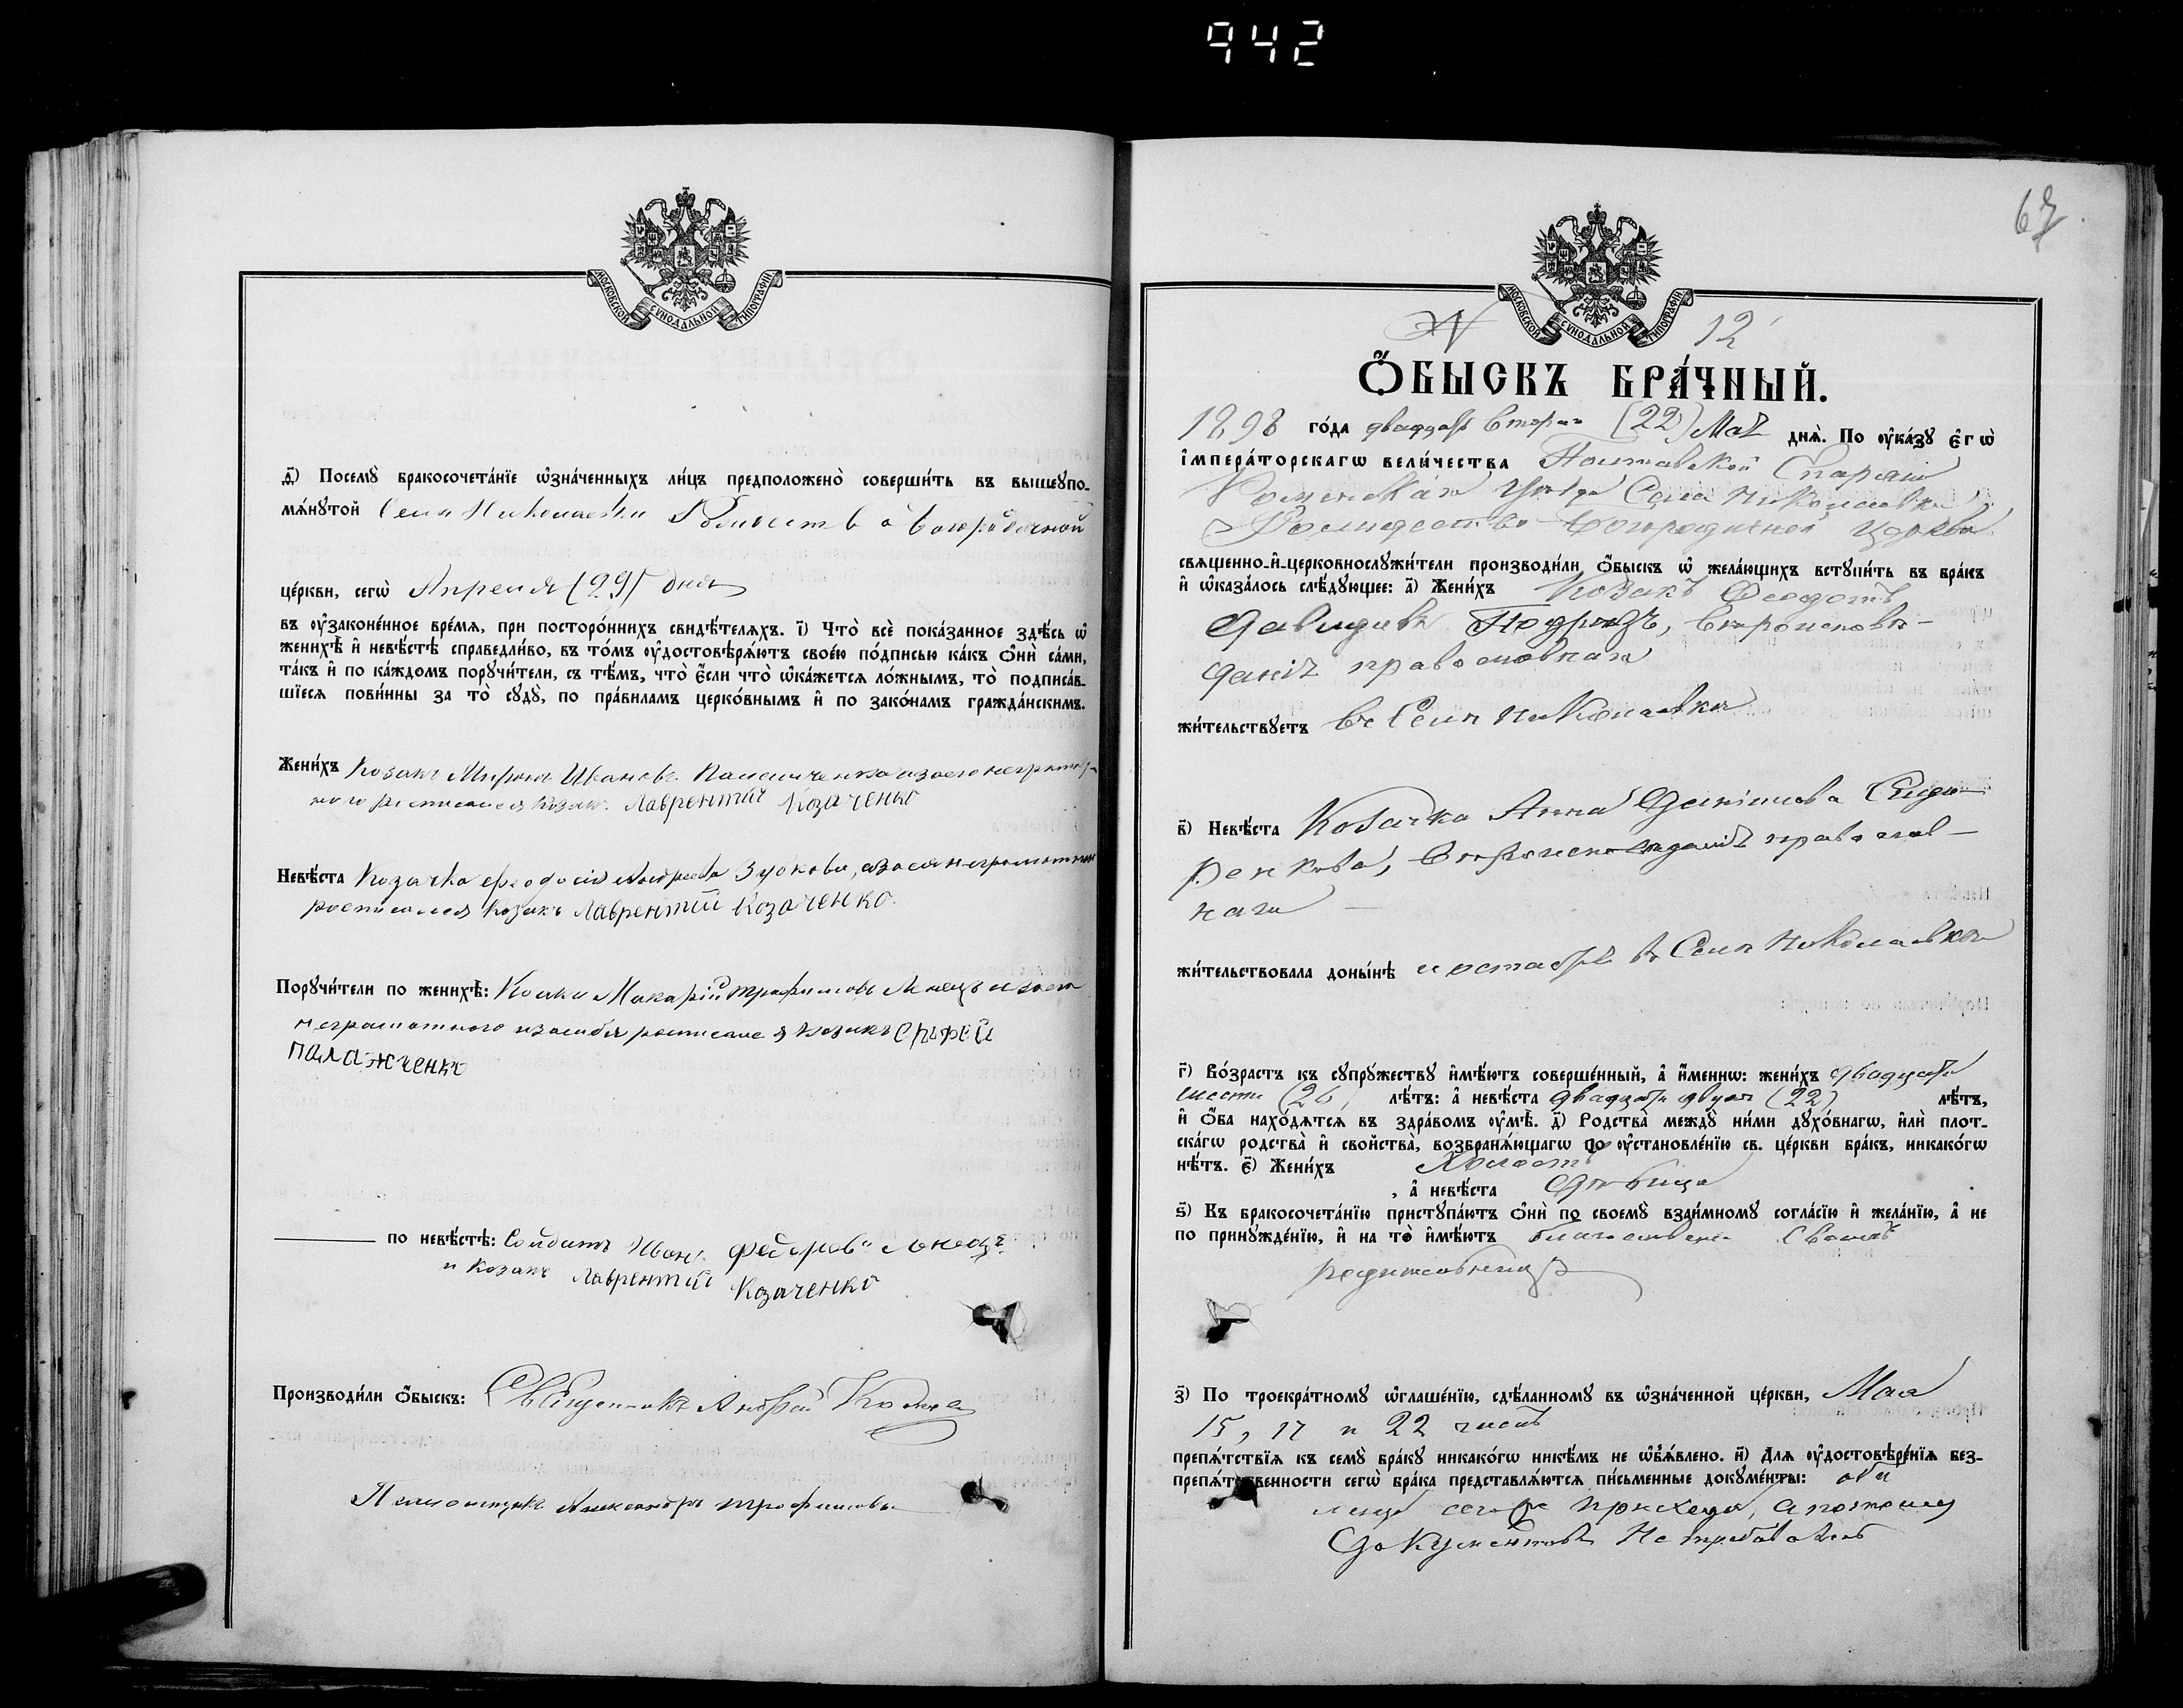 942
МОСКОВСКОЙ СУНОДАЛЬНОЙ ТИПОГРАФІИ
д҃) Посемꙋ̀ бракосочета́нїе ѡ҆зна́ченныхъ ли́цъ предположено̀ соверши́ть въ вышеꙋпо-
мѧ́нꙋтой Села Николаевки Рождество Богородичной
це́ркви, сегѡ̀ Апреля (29) дня
въ ᲂу҆законе́нное вре́мѧ, при посторо́ннихъ свидѣ́телѧхъ. і҃) Что̀ всѐ пока́занное здѣ́сь ѡ҆
женихѣ̀ и҆ невѣ́стѣ справедли́во, въ то́мъ ᲂу҆достовѣрѧ́ютъ свое́ю по́дписью ка́къ ѻ҆нѝ са́ми,
та́къ и҆ по ка́ждомъ порꙋчи́тели, съ тѣ́мъ, что̀ є҆́сли что̀ ѡ҆ка́жетсѧ ло́жнымъ, то̀ подписа́в-
шїесѧ пови́нны за то̀ сꙋдꙋ̀, по пра́виламъ церко́внымъ и҆ по зако́намъ гражда́нскимъ.
Жени́хъ Козакъ Миронъ Ивановъ
росписался Козакъ Лаврентій Козаченко
Невѣ́ста Козачка Феодосія Андреева Зубкова, а за ея неграмотную
росписался Козакъ Лаврентій Козаченко.
Порꙋчи́тели по женихѣ̀: Козаки Макарій Трофимовъ
неграмотного и за себя росписался Козакъ Сергей
Палажченко
по невѣ́стѣ: Солдатъ Иванъ Федоровъ
и Козакъ Лаврентій Козаченко
Производи́ли ѻ҆́быскъ: Священникъ Андрей
Псаломщикъ Александръ Трофимовъ
67
МОСКОВСКОЙ СУНОДАЛЬНОЙ ТИПОГРАФІИ
№ 12
Ѻ҆́БЫСКЪ БРА́ЧНЫЙ.
1898 го́да двадцать втораго (22) Мая днѧ̀. По ᲂу҆ка́зꙋ є҆гѡ̀
і҆мпера́торскагѡ вели́чества Полтавской Епархіи
Роменскаго Уѣзда Села Николаевки
Рождество-Богородичной церкви
свѧщенно-и҆-церковнослꙋжи́тели производи́ли ѻ҆́быскъ ѡ҆ жела́ющихъ встꙋпи́ть въ бра́къ
и҆ ѡ҆каза́лось слѣ́дꙋющее: а҃) Жени́хъ Козакъ Феодотъ
Давидовъ Подрѣзъ, вѣроисповѣ-
данія православнаго
жи́тельствꙋетъ въ Селѣ Николаевкѣ
в҃) Невѣ́ста Козачка Анна Даніилова Сидо-
ренкова, вѣроисповѣданія православ-
наго
жи́тельствовала доны́нѣ въ Селѣ Николаевкѣ
г҃) Во́зрастъ къ сꙋпрꙋ́жествꙋ и҆мѣ́ютъ соверше́нный, а҆ и҆́меннѡ: жени́хъ двадцати
шести (26) лѣ́тъ: а҆ невѣ́ста двадцати двухъ (22) лѣ́тъ,
и҆ ѻ҆́ба нахо́дѧтсѧ въ здра́вомъ ᲂу҆мѣ̀. д҃) Родства̀ междꙋ̀ ни́ми дꙋхо́внагѡ, и҆лѝ плот-
ска́гѡ родства̀ и҆ свойства̀, возбранѧ́ющагѡ по ᲂу҆становле́нїю св. це́ркви бра́къ, никако́гѡ
нѣ́тъ. є҃) Жени́хъ Холостъ
, а҆ невѣ́ста Дѣвица
ѕ҃) Къ бракосочета́нїю пристꙋпа́ютъ ѻ҆нѝ по своемꙋ̀ взаи́мномꙋ согла́сїю и҆ жела́нїю, а҆ не
по принꙋжде́нїю, и҆ на то̀ и҆мѣ́ютъ благословеніе своихъ
родителей
з҃) По троекра́тномꙋ ѡ҆глаше́нїю, сдѣ́ланномꙋ въ ѡ҆зна́ченной це́ркви, Мая
15, 17 и 22 числъ
препѧ́тствїѧ къ семꙋ̀ бра́кꙋ никако́гѡ никѣ́мъ не ѡ҆б̾ѧ́влено. и҃) Длѧ ᲂу҆достовѣре́нїѧ без-
препѧ́тственности сегѡ̀ бра́ка представлѧ́ютсѧ пи́сьменные докꙋме́нты: оба
лица сего же прихода, а потому
документовъ не требовалось